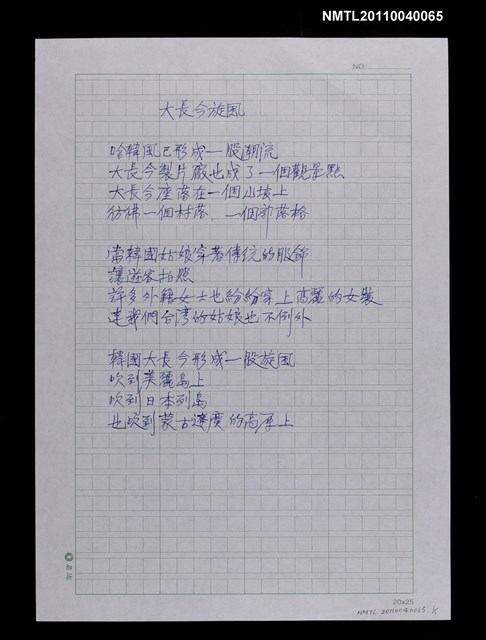 NMTL20110040065
NO.
大長今旋風
哈韓風已形成一股潮流
大長今製片廠也成了一個觀景點
大長今座落在一個小坡上
彷彿一個村落,一個部落格
當韓國姑娘穿著傳統的服飾
讓遊客拍照
許多外籍女士也紛紛穿上高麗的女裝
連我們台灣的姑娘也不例外
韓國大長今形成一股旋風
吹到美麗島上
吹到日本列島
也吹到蒙古遼廣的高原上
20x25
NMTL 20110040065